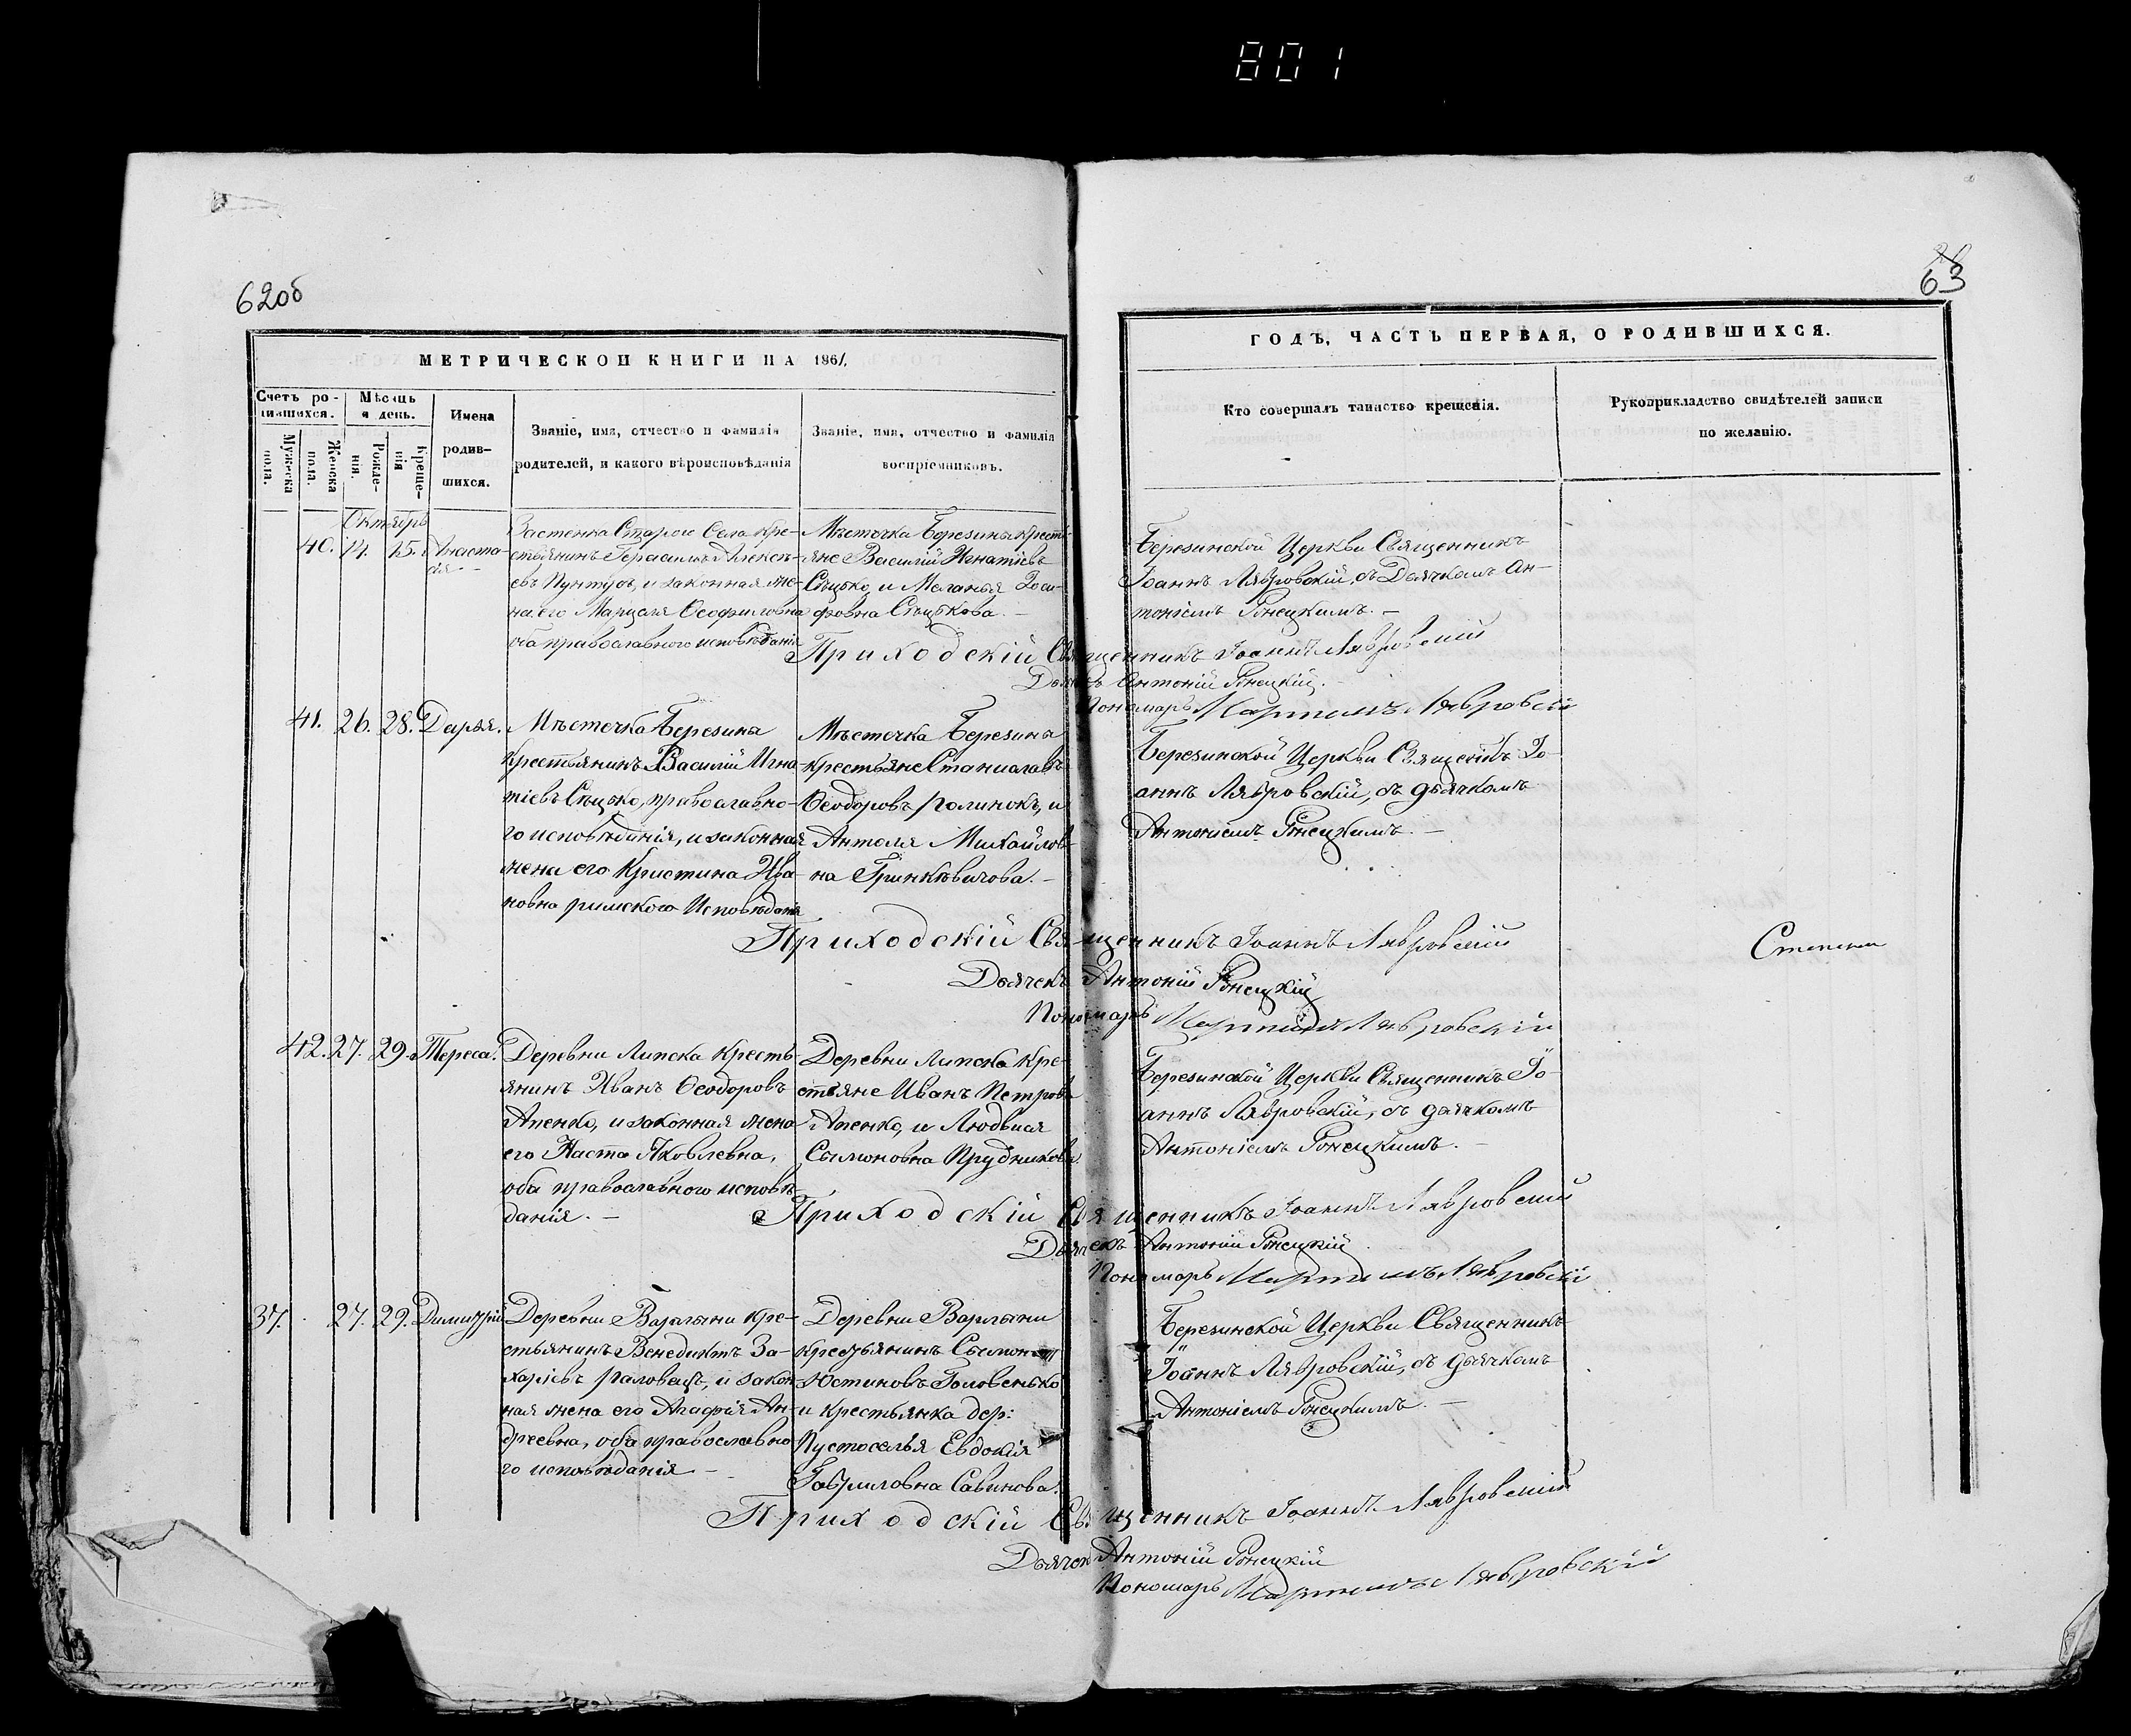 801
62об
63
МЕТРИЧЕСКОЙ КНИГИ НА 1861.
ГОДЪ, ЧАСТЬ ПЕРВАЯ, О РОДИВШИХСЯ.
Счетъ ро-
дившихся.
Мужеска
пола.
Женска
пола.
Мѣсяцъ
и день.
Рожде-
нія.
Креще-
нія
Имена
родив-
шихся.
Званіе, имя, отчество и фамилія
родителей, и какого вѣроисповѣданія
Званіе, имя, отчество и фамилія
воспріемниковъ.
Кто совершалъ таинство крещенія.
Рукоприкладство свидѣтелей записи
по желанію.
Октябрь
40. 14. 15. Анаста-
сія
Застенка Старои Села кре-
стьянинъ Герасимъ Алексѣ-
евъ Пунтусъ, и законная же-
на его Марцеля Ѳеофиловна
оба православного исповѣданія
Мѣстечка Березина кресть-
яне Василій Игнатіевъ
Сѣцько, и Меланья Іоси-
фовна Сѣцькова.
Березинской Церкви Священникъ
Іоаннъ Лявровскій, съ Дьячкомъ Ан-
тоніемъ Ронецкимъ.
Приходскій Священникъ Іоаннъ Лявровскій
Дьячекъ Антоній Ронецкій.
Пономарь Мартинъ Лявровскій
41. 26. 28. Дарья.
Мѣстечка Березина
крестьянинъ Василій Игна-
тіевъ Сѣцько, православно-
го исповѣданія, и законная
жена его Кристина Ива-
новна римского Исповѣданія
Мѣстечка Березина
крестьяне Станиславъ
Ѳеодоровъ Ралинокъ, и
Антоля Михайлов-
на Гринкѣвичова.
Березинской Церкви Священникъ Іо-
аннъ Лявровскій, съ дьячкомъ
Антоніемъ Ронецкимъ.
Приходскій Священникъ Іоаннъ Лявровскій
Степени
Дьячекъ Антоній Ронецкій
Пономарь Мартинъ Лявровскій
42. 27. 29. Тереса.
Деревни Липска кресть-
янинъ Иванъ Ѳеодоровъ
Апенко, и законная жена
его Наста Яковлевна,
оба православного исповѣ-
данія.
Деревни Липска кре-
стьяне Иванъ Петровъ
Апенко, и Людвися
Сымоновна Прудникова.
Березинской Церкви Священникъ Іо-
аннъ Лявровскій, съ дьячкомъ
Антоніемъ Ронецкимъ.
Приходскій Священникъ Іоаннъ Лявровскій
Дьячекъ Антоній Ронецкій
Пономарь Мартинъ Лявровскій
37. 27. 29. Димитрій
Деревни Варлыни кре-
стьянинъ Венедиктъ За-
харіевъ Раловецъ, и закон-
ная жена его Агафія Ан-
дреевна, оба православно-
го исповѣданія
Деревни Варлыни
крестьянинъ Сымонъ
Юстиновъ Головенько
и крестьянка дер:
Пустоселья Евдокія
Гавриловна Савинова.
Березинской Церкви Священникъ
Іоаннъ Лявровскій, съ дьячкомъ
Антоніемъ Ронецкимъ.
Приходскій Священникъ Іоаннъ Лявровскій
Дьячекъ Антоній Ронецкій
Пономарь Мартинъ Лявровскій